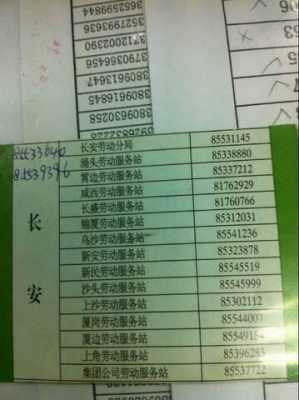 长安
长安劳动分局 85531145
涌头劳动服务站 85338880
霄边劳动服务站 85337212
咸西劳动服务站 81762929
长盛劳动服务站 81760766
锦厦劳动服务站 85312031
乌沙劳动服务站 85541236
新安劳动服务站 85323878
新民劳动服务站 85545519
沙头劳动服务站 85545999
上沙劳动服务站 85302112
厦岗劳动服务站 85544007
厦边劳动服务站 85549184
上角劳动服务站 85396283
集团公司劳动服务站 85537722
3682599844
3527993636
3712002390
3790366456
3809613647
3809616845
3809630258